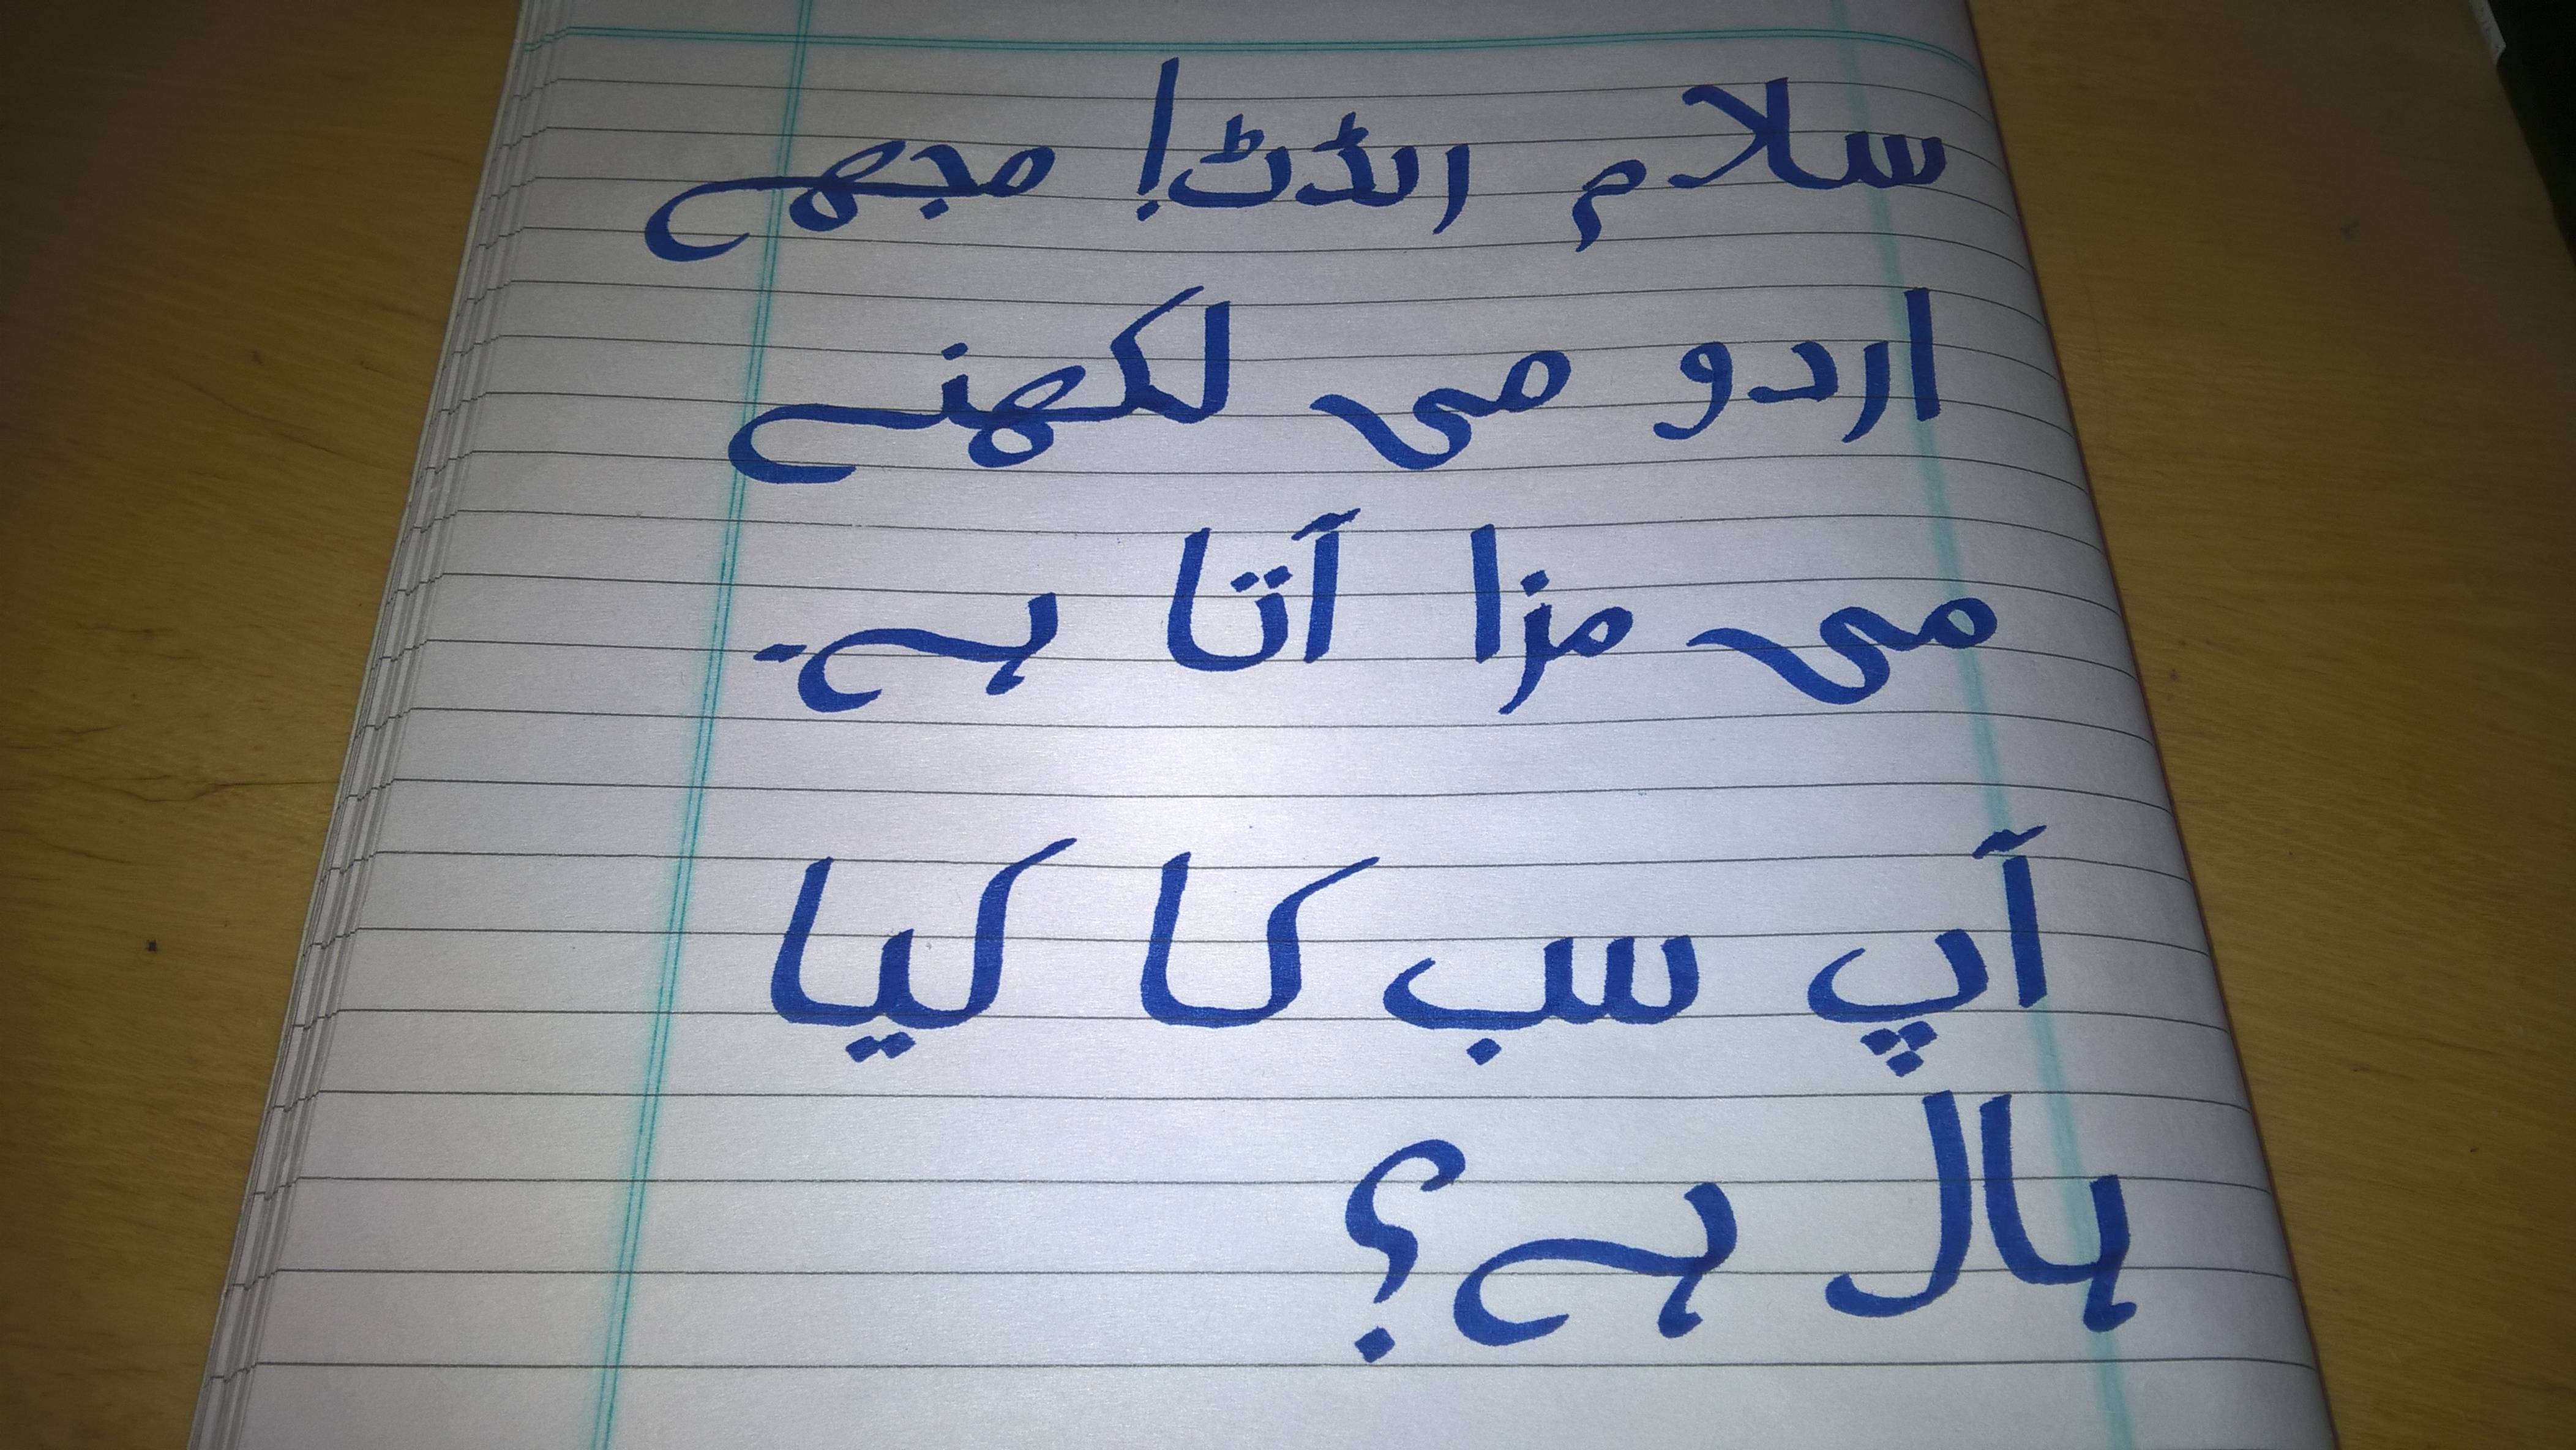 سلام رىڈٹ! مجھے
اردو می لکھنے
می مزا آتا ہے۔
آپ سب کا کیا
ہال ہے؟